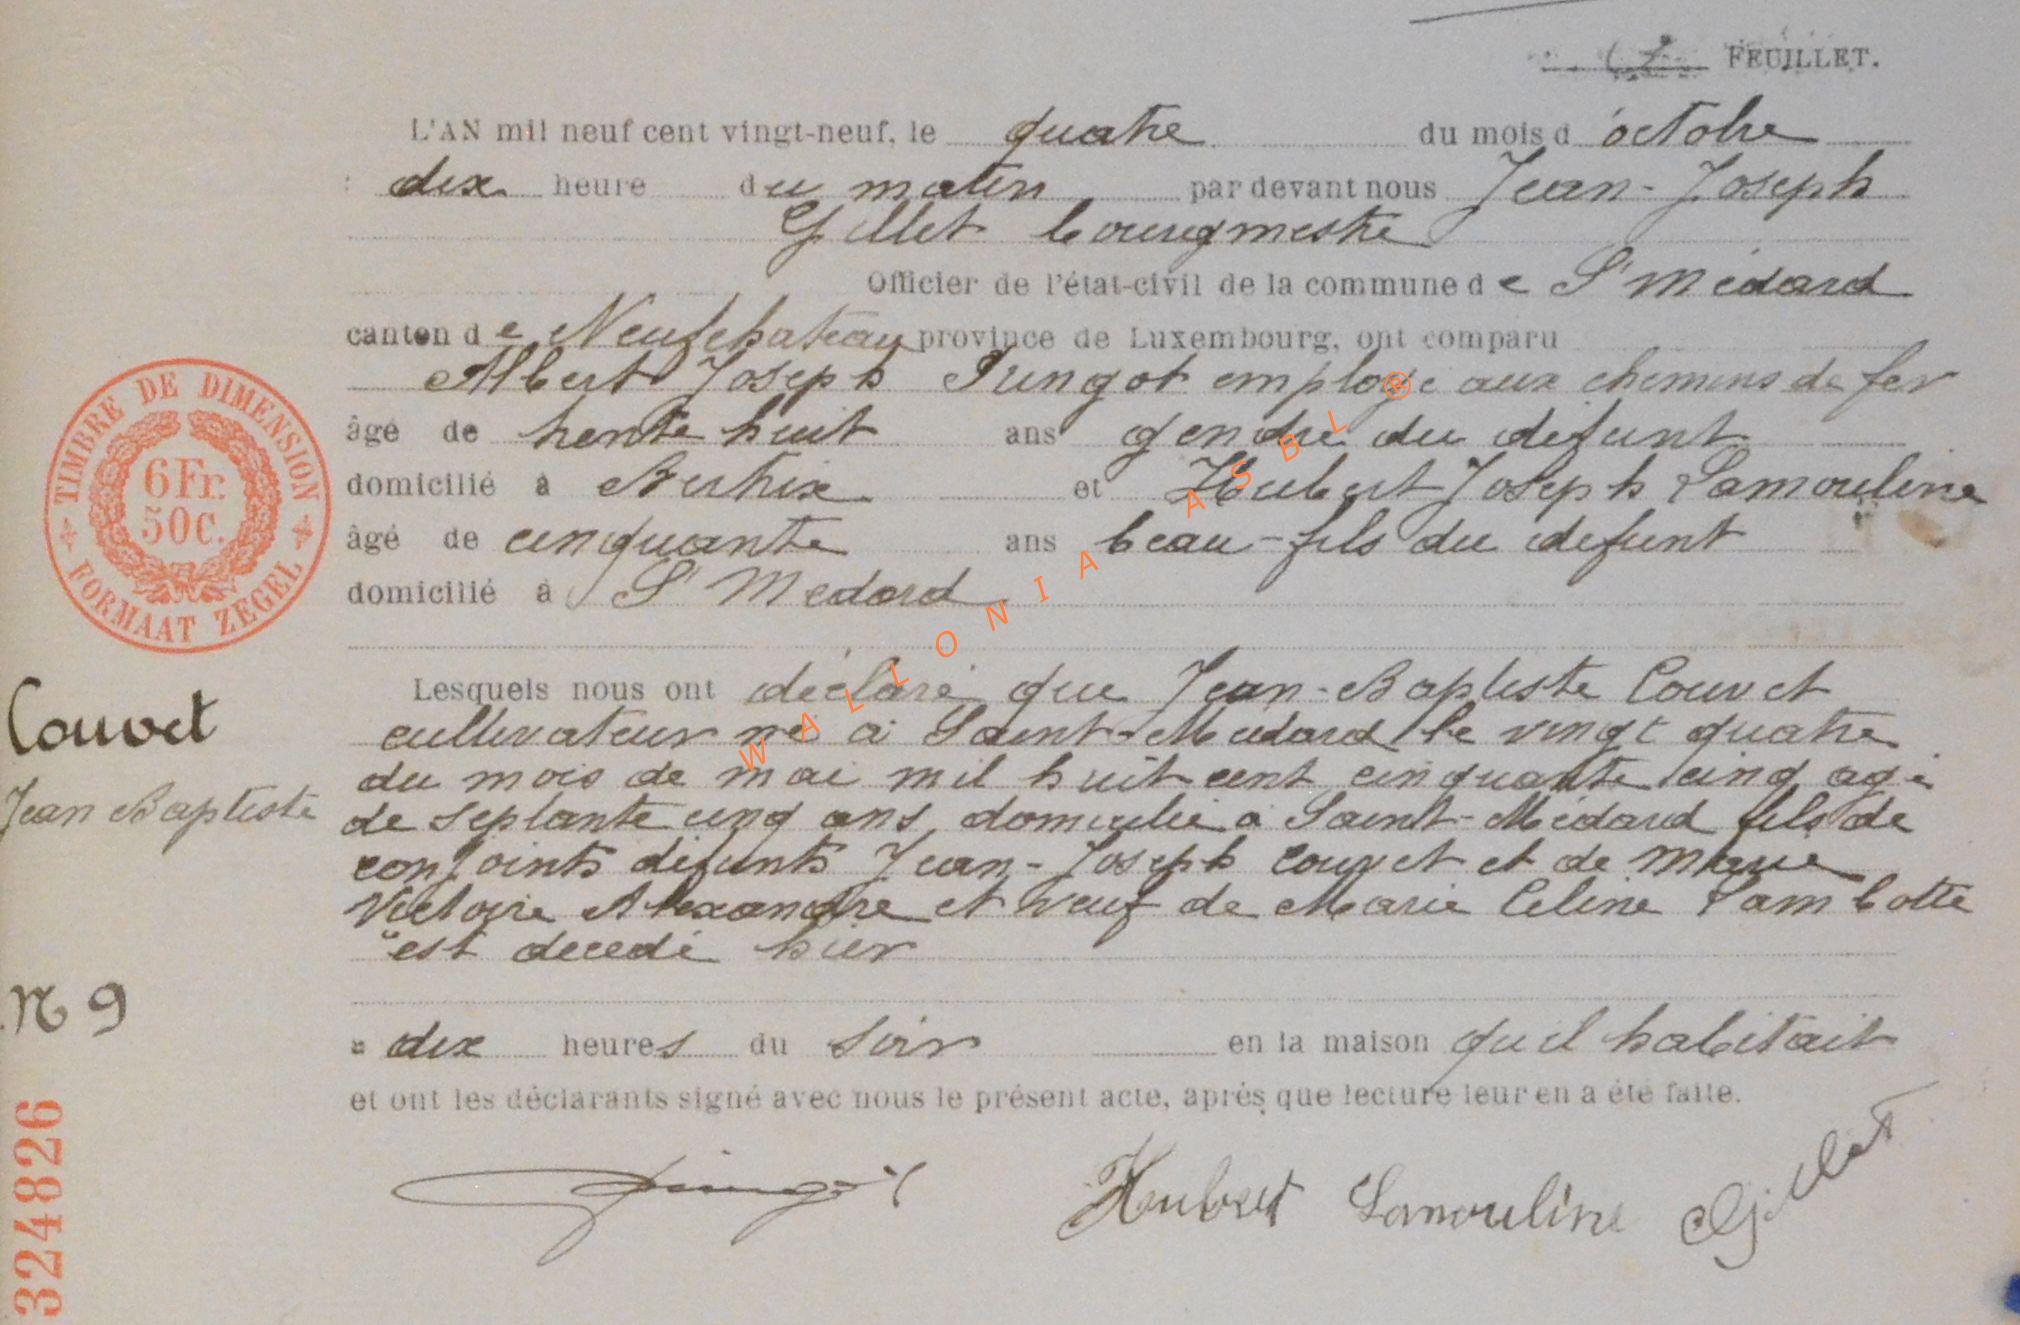 FEUILLET.
L'AN mil neuf cent vingt-neuf, le quatre du mois d'octobre
dix heure du matin par devant nous Jean-Joseph
Gillet bourgmestre
Officier de l'état-civil de la commune de St Médard
canton de Neufchateau province de Luxembourg, ont comparu
Albert Joseph Pungot employé aux chemins de fer
âgé de trente huit ans gendre du défunt
domicilié à Bertrix et Hubert Joseph Lamouline
âgé de cinquante ans beau-fils du defunt
domicilié à St Medard
Lesquels nous ont déclaré que Jean-Baptiste Couvet
cultivateur né à Saint-Médard le vingt quatre
du mois de mai mil huit cent cinquante cinq agé
de septante cinq ans, domicilié à Saint-Médard fils de
conjoints défunts Jean-Joseph Couvet et de Marie
Victoire Alexandre et veuf de Marie Celine Lambotte
est decedé hier
à dix heures du soir en la maison qu'il habitait
et ont les déclarants signé avec nous le présent acte, après que lecture leur en a été faite.
Hubert Lamouline Gillet
TIMBRE DE DIMENSION
6 Fr.
50 C.
FORMAAT ZEGEL
Couvet
Jean Baptiste
N 9
324826
WALLONIA ASBL ®